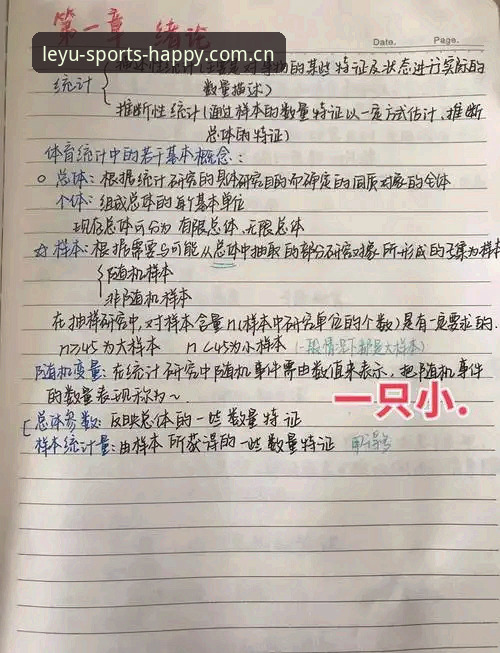 第一章 绪论
Date. Page.
leyu-sports-happy.com.cn
统计
描述性统计(主要是对事物的某些特征及状态进行实际的
数量描述)
推断性统计(通过样本的数量特征以一定方式估计、推断
总体的特征)
体育统计中的若干基本概念:
总体:根据统计研究的具体研究目的而确定的同质对象的全体
个体:组成总体的每个基本单位
现存总体可分为 有限总体、无限总体
☆ 样本:根据需要与可能从总体中抽取的部分研究对象所形成的子集为样本
随机样本
非随机样本
在抽样研究中,对样本含量n(样本中研究单位的个数)是有一定要求的.
n≥45为大样本 n<45为小样本 (一般情况下都是大样本)
随机变量:在统计研究中随机事件需由数值来表示,把随机事件
的数量表现称为~.
一只小.
总体参数:反映总体的一些数量特征
样本统计量:由样本所获得的一些数量特征